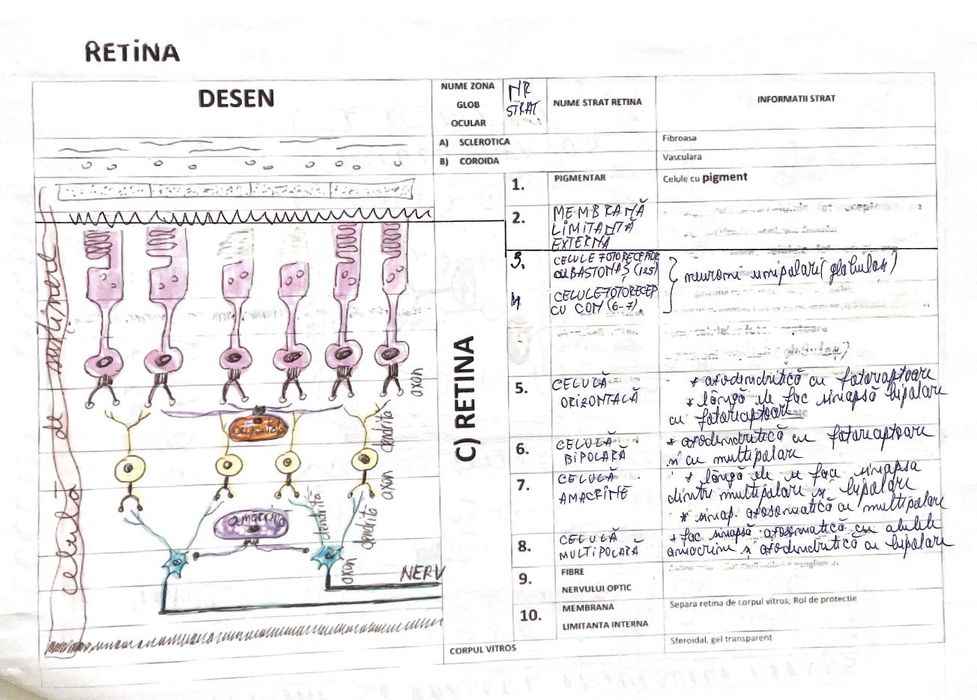 RETINA
DESEN
NUME ZONA
GLOB
OCULAR
NR
STRAT
NUME STRAT RETINA
INFORMATII STRAT
A) SCLEROTICA
Fibroasa
B) COROIDA
Vasculara
C) RETINA
1. PIGMENTAR
Celule cu pigment
2. MEMBRANĂ
LIMITANTĂ
EXTERNĂ
3. CELULE FOTORECEPTOR
CU BASTONAȘ (125)
4 CELULE FOTORECEP
CU CON (6-7)
neuroni unipolari (globulas)
5. CELULĂ
ORIZONTALĂ
* axodendritică cu fotoreceptoare
* lângă ele fac sinapsă bipolare
cu fotoreceptoare
6. CELULĂ
BIPOLARĂ
* axodendritică cu fotoreceptoare
și cu multipolare
7. CELULĂ
AMACRINE
* lângă ele se fac sinapsa
dintre multipolare și bipolare
* sinap. axosomatică cu multipolare
8. CELULĂ
MULTIPOLARĂ
* fac sinapsă axosomatică cu
amacrine și axodendritică cu bipolare
9. FIBRE
NERVULUI OPTIC
10. MEMBRANA
LIMITANTA INTERNA
Separa retina de corpul vitros, Rol de protectie
CORPUL VITROS
Steroidal, gel transparent
celulă de susținere
axon
dendrita
orizontală
axon
dendrită
amacrită
dendrită
axon
NERV